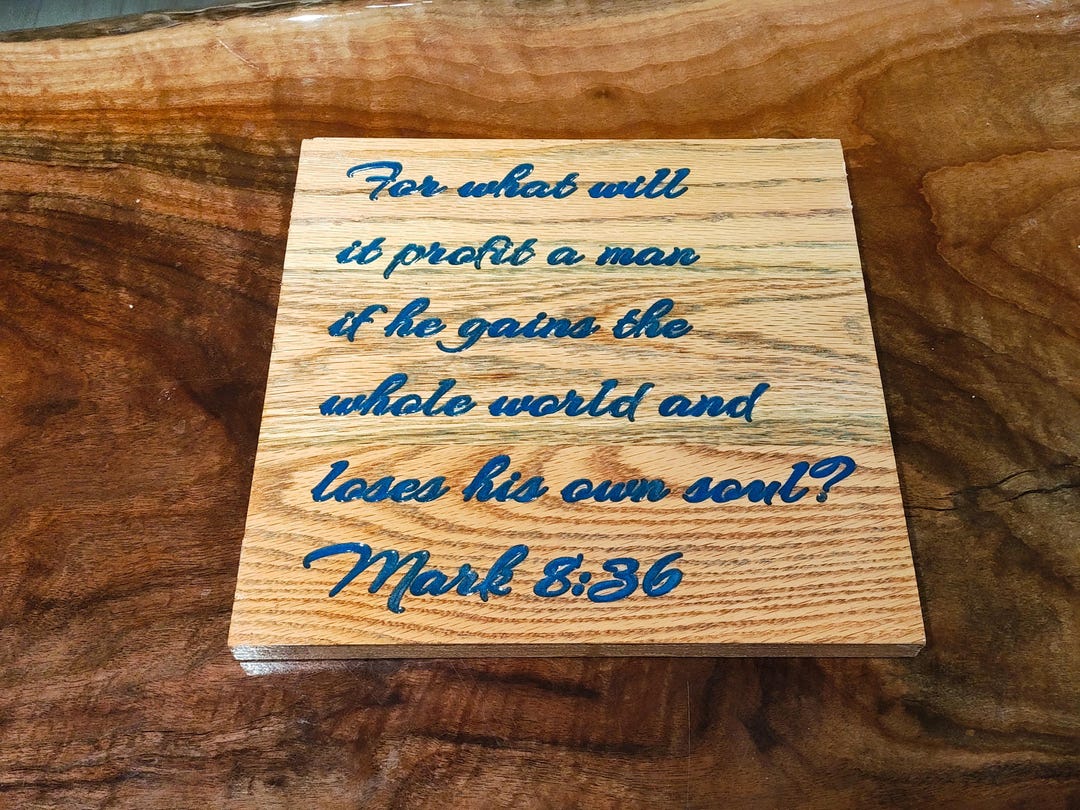 For what will
it profit a man
if he gains the
whole world and
loses his own soul?
Mark 8:36